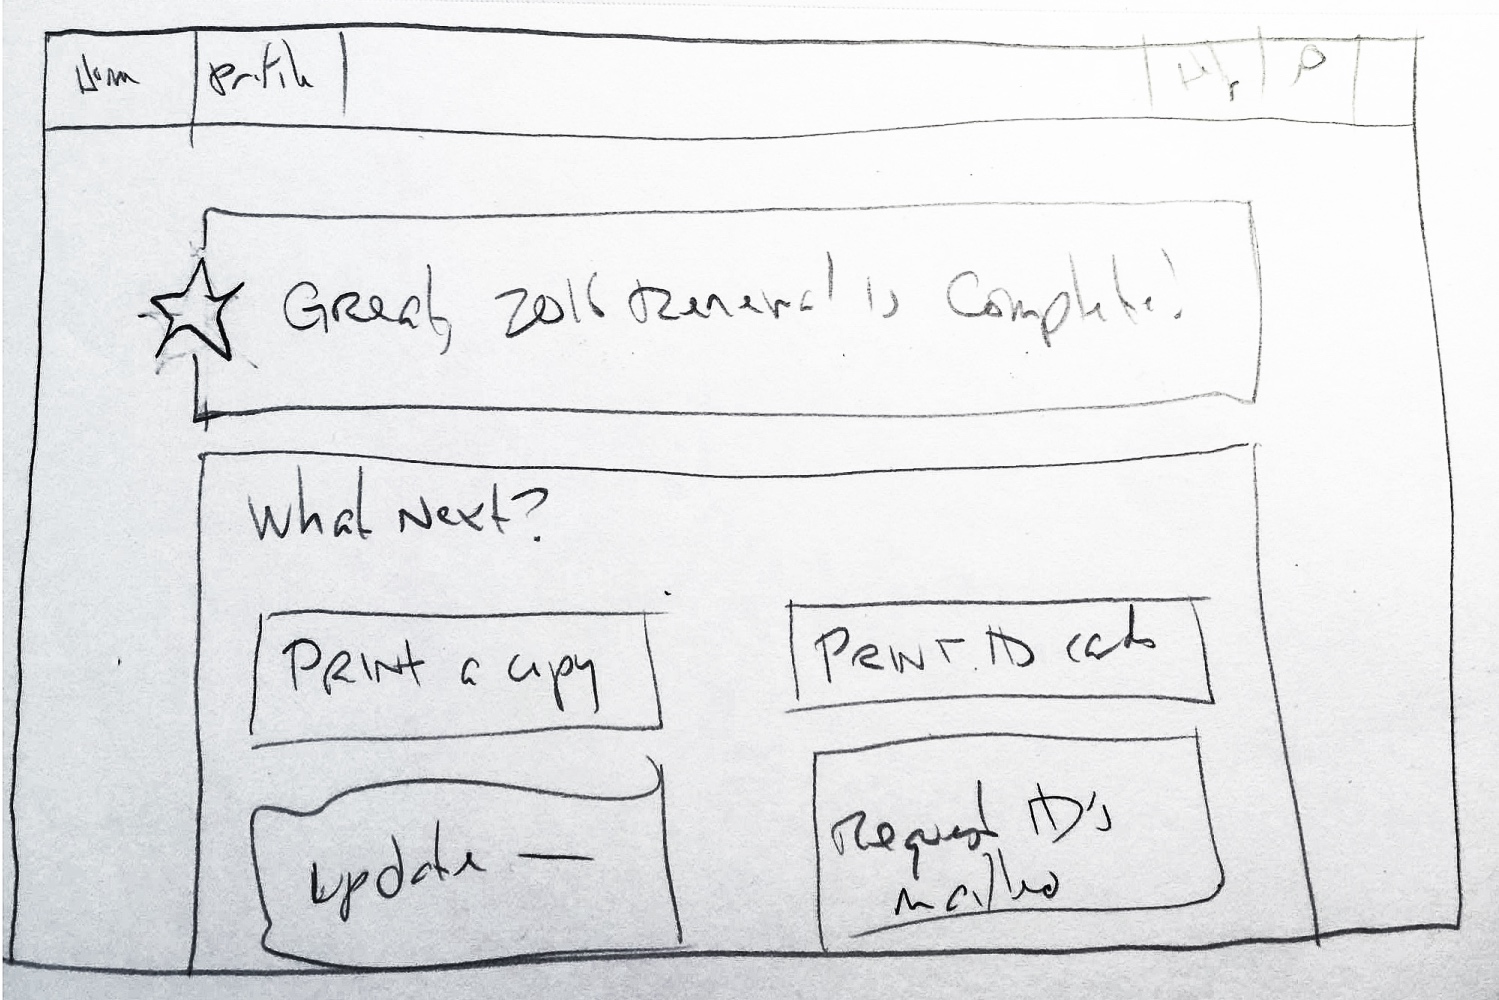 Home
Profile
Help
Great, 2016 Renewal is Complete!
What Next?
Print a copy
Print ID cards
Update —
Request ID's
mailed